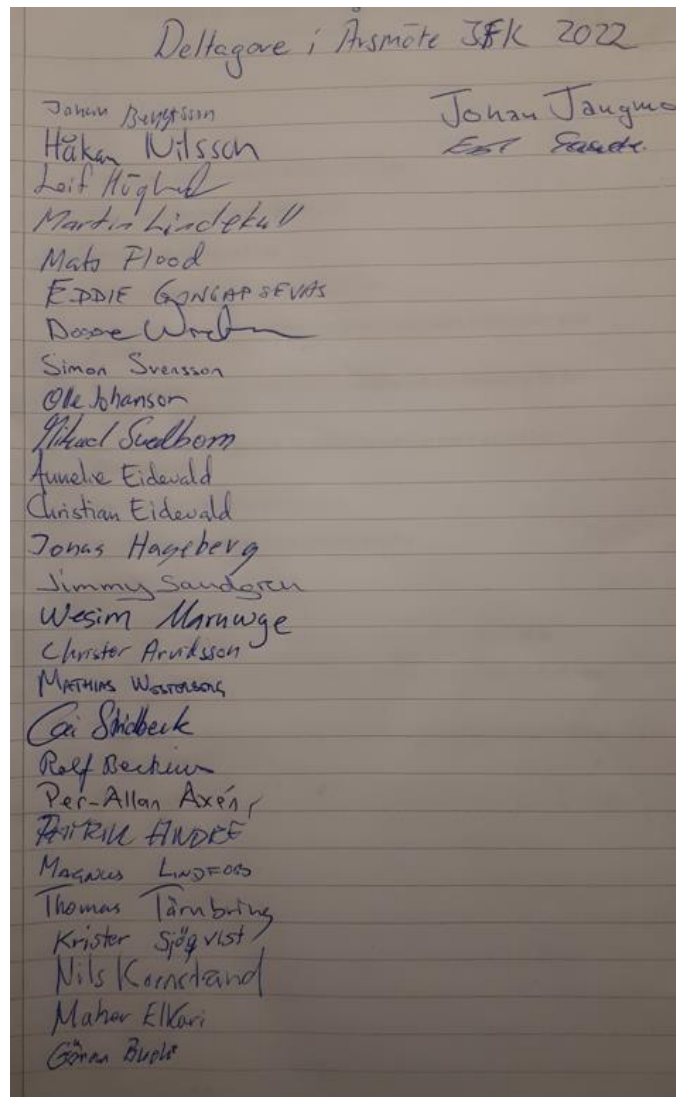 Deltagare i Årsmöte JFK 2022
Johan Bengtsson
Håkan Nilsson
Leif Höglund
Martin Lindekull
Mats Flood
EDDIE
Simon Svensson
Olle Johanson
Mikael Svedbom
Annelie Eidevald
Christian Eidevald
Jonas Hageberg
Jimmy Sandgren
Wesim
Christer Arvidsson
MATHIAS WESTERBERG
Stridbeck
Rolf
Per-Allan Axén
PATRIK ANDRÉ
MAGNUS LINDFORS
Thomas Tärnbring
Krister Sjöqvist
Nils Kornstrand
Maher Elkari
Göran
Johan Jangmo